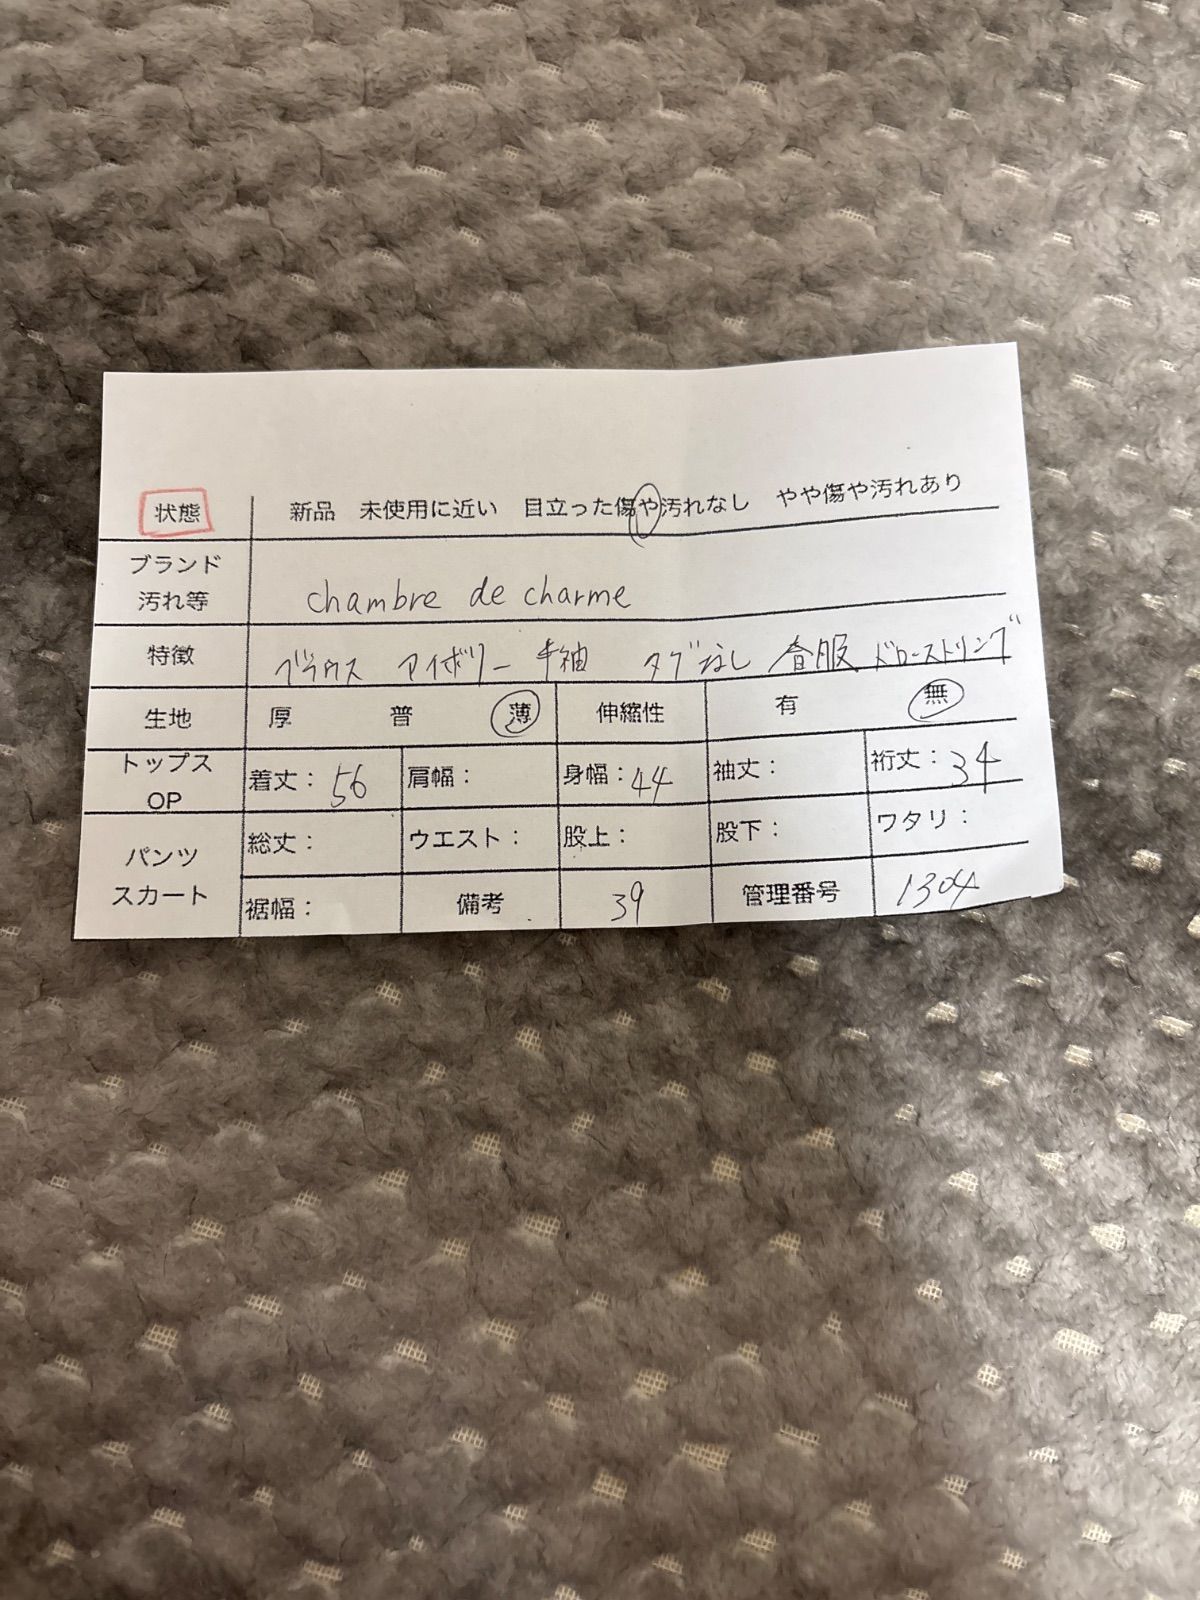 状態 新品 未使用に近い 目立った傷や汚れなし やや傷や汚れあり
ブランド
汚れ等 chambre de charme
特徴 ブラウス アイボリー 半袖 タグなし 春服 ドローストリング
生地 厚 普 薄 伸縮性 有 無
トップス
OP 着丈：56 肩幅： 身幅：44 袖丈： 裄丈：34
パンツ
スカート 総丈： ウエスト： 股上： 股下： ワタリ：
裾幅： 備考 39 管理番号 1304